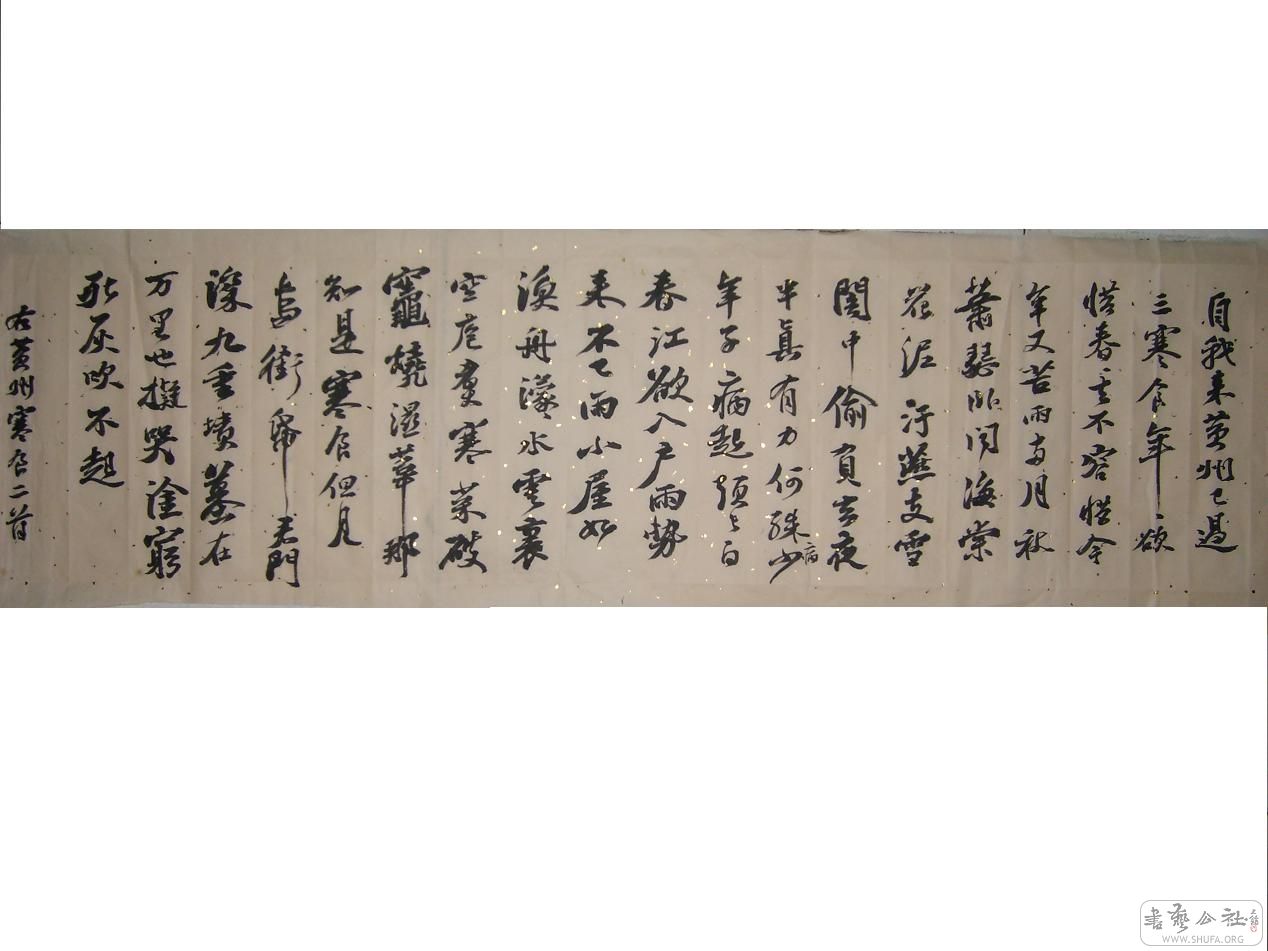 自我来黄州已過
三寒食年〻欲
惜春春去不容惜今
年又苦雨两月秋
蕭瑟卧闻海棠
花泥汙燕支雪
闇中偷負去夜
半真有力何殊少
病
年子病起頭已白
春江欲入户雨势
来不已雨小屋如
漁舟濛水雲裏
空庖煮寒菜破
竈燒溼葦那
知是寒食但見
烏銜帋君門
深九重墳墓在
万里也擬哭塗窮
死灰吹不起
右黄州寒食二首
書藝公社
WWW.SHUFA.ORG